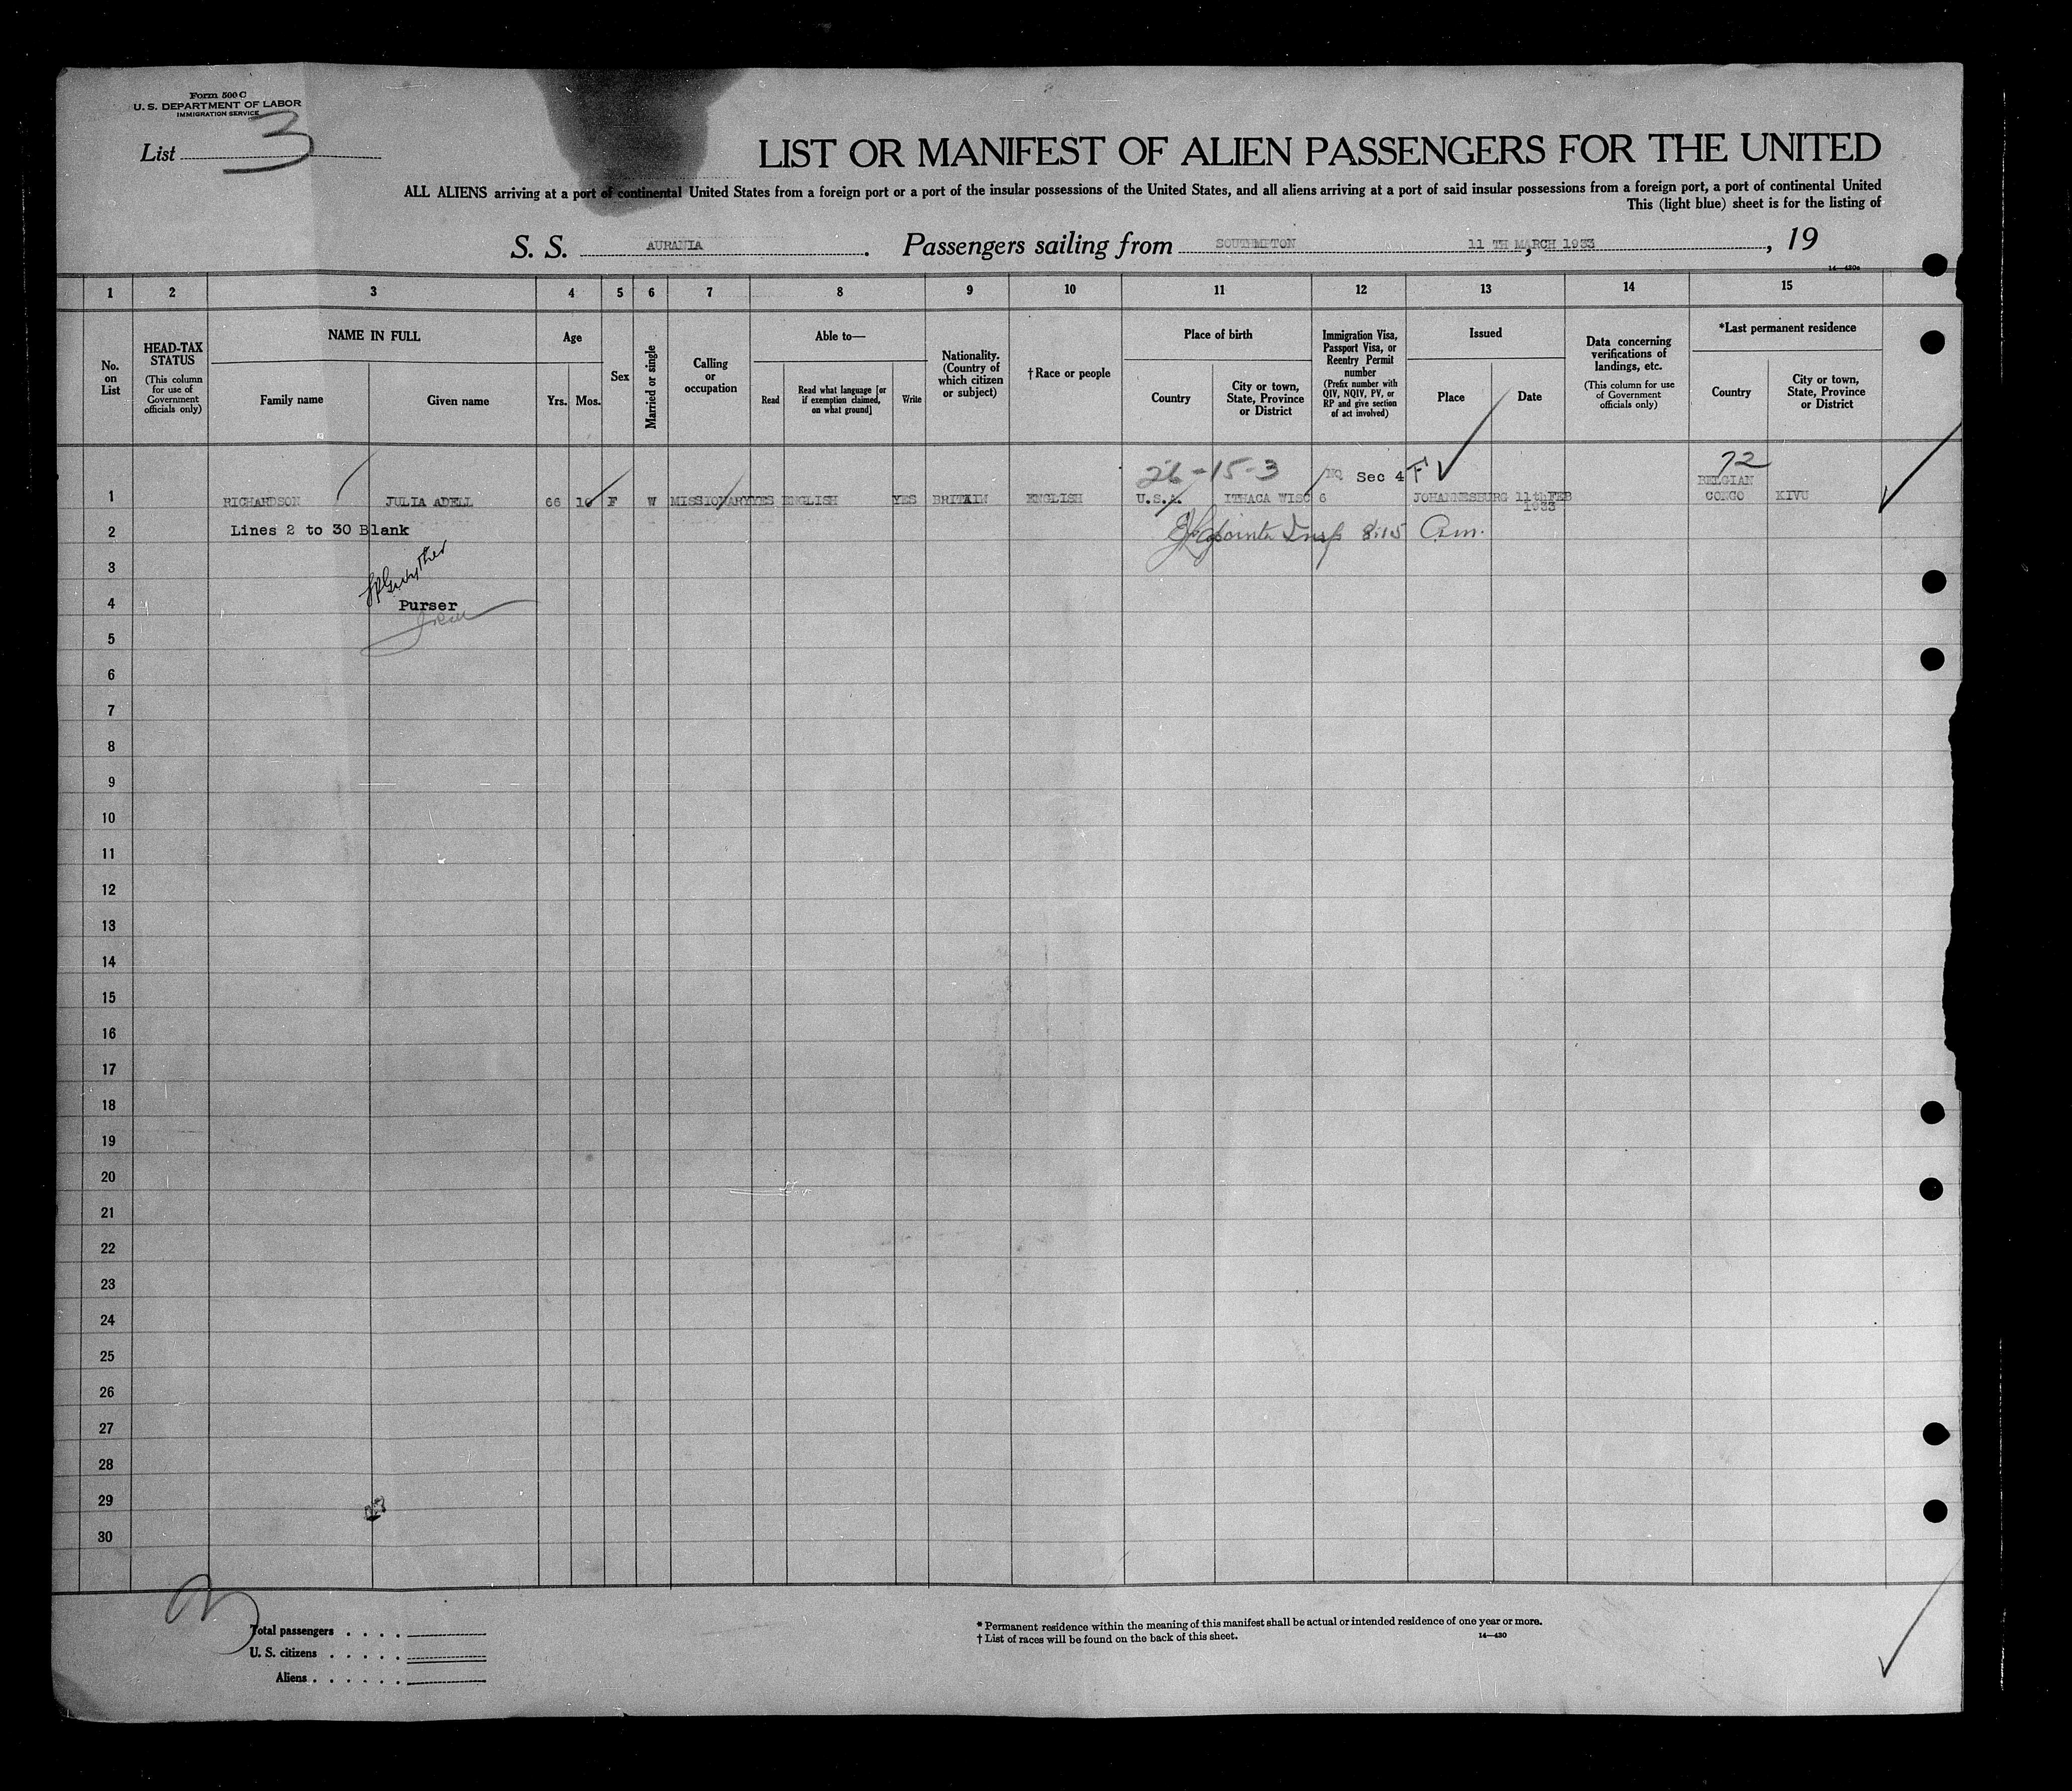 Form 500 C
U. S. DEPARTMENT OF LABOR
IMMIGRATION SERVICE
List 3
LIST OR MANIFEST OF ALIEN PASSENGERS FOR THE UNITED
ALL ALIENS arriving at a port of continental United States from a foreign port or a port of the insular possessions of the United States, and all aliens arriving at a port of said insular possessions from a foreign port, a port of continental United
This (light blue) sheet is for the listing of
S. S. AURANIA. Passengers sailing from SOUTHMPTON, 11 TH MARCH 1933, 19
14—430a
1 2 3 4 5 6 7 8 9 10 11 12 13 14 15
No. on List
HEAD-TAX STATUS
(This column for use of Government officials only)
NAME IN FULL
Family name
Given name
Age
Yrs.
Mos.
Sex
Married or single
Calling or occupation
Able to—
Read
Read what language [or if exemption claimed, on what ground]
Write
Nationality. (Country of which citizen or subject)
†Race or people
Place of birth
Country
City or town, State, Province or District
Immigration Visa, Passport Visa, or Reentry Permit number
(Prefix number with QIV, NQIV, PV, or RP and give section of act involved)
Issued
Place
Date
Data concerning verifications of landings, etc.
(This column for use of Government officials only)
*Last permanent residence
Country
City or town, State, Province or District
26-15-3 NQ Sec 4 F 72
1 RICHARDSON JULIA ADELL 66 10 F W MISSIONARY YES ENGLISH YES BRITAIN ENGLISH U.S.A. ITHACA WISC 6 JOHANNESBURG 11thFEB 1933 BELGIAN CONGO KIVU
2 Lines 2 to 30 Blank Insp 8:15 Am.
3
4 Purser
5
6
7
8
9
10
11
12
13
14
15
16
17
18
19
20
21
22
23
24
25
26
27
28
29
30
Total passengers . . . .
U. S. citizens . . . . .
Aliens . . . . . .
* Permanent residence within the meaning of this manifest shall be actual or intended residence of one year or more.
† List of races will be found on the back of this sheet.
14—430